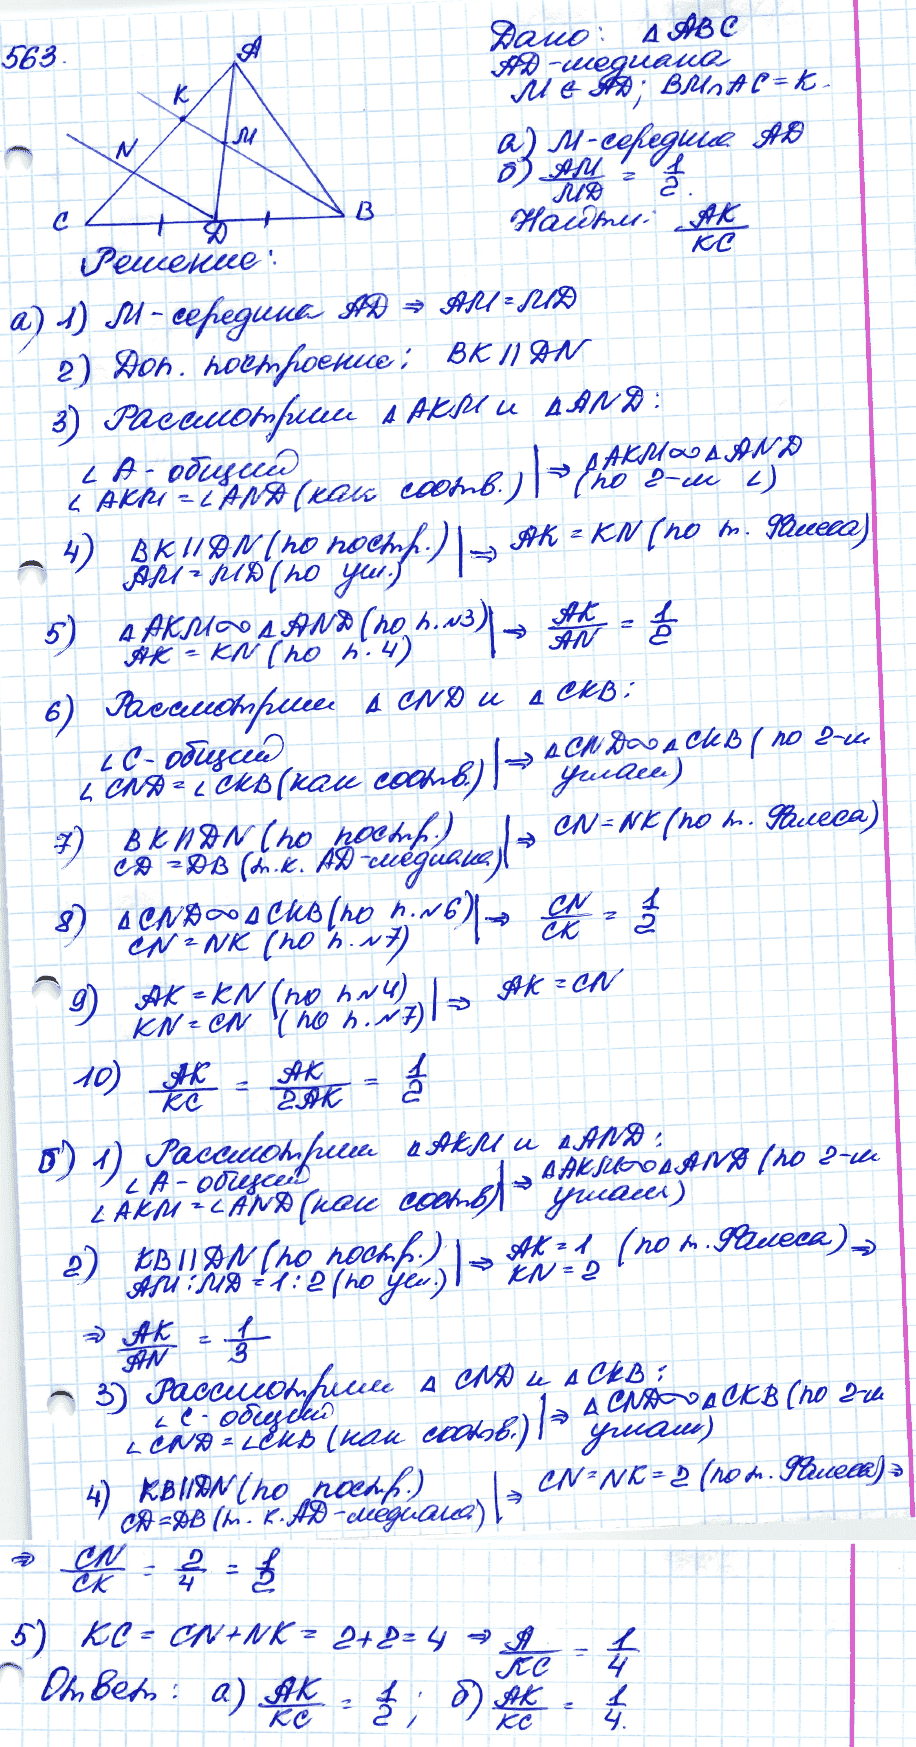 563.
A
K
M
N
C
D
B
Дано: △ABC
AD-медиана
M ∈ AD; BM∩AC=K.
а) M-середина AD
б) AM/MD = 1/2.
Найти: AK/KC
Решение:
а) 1) M-середина AD ⇒ AM=MD
2) Доп. построение: BK || DN
3) Рассмотрим △AKM и △AND:
∠A-общий | ⇒ △AKM∞△AND
∠AKM=∠AND(как соотв.) | (по 2-м ∠)
4) BK||DN(по постр.) | ⇒ AK=KN(по т. Фалеса)
AM=MD(по усл.)
5) △AKM∞△AND(по п.№3) | ⇒ AK/AN = 1/2
AK=KN(по п.4)
6) Рассмотрим △CND и △CKB:
∠C-общий | ⇒ △CND∞△CKB(по 2-м
∠CND=∠CKB(как соотв.) | углам)
7) BK||DN(по постр.) | ⇒ CN=NK(по т. Фалеса)
CD=DB(т.к. AD-медиана)
8) △CND∞△CKB(по п.№6) | ⇒ CN/CK = 1/2
CN=NK(по п.№7)
9) AK=KN(по п№4) | ⇒ AK=CN
KN=CN (по п.№7)
10) AK/KC = AK/2AK = 1/2
б) 1) Рассмотрим △AKM и △AND:
∠A-общий | ⇒ △AKM∞△AND(по 2-м
∠AKM=∠AND(как соотв) | углам)
2) KB||DN(по постр.) | ⇒ AK=1 (по т.Фалеса) ⇒
AM:MD=1:2(по усл.) | KN=2
⇒ AK/AN = 1/3
3) Рассмотрим △CND и △CKB:
∠C-общий | ⇒ △CND∞△CKB(по 2-м
∠CND=∠CKB(как соотв.) | углам)
4) KB||DN(по постр.) | ⇒ CN=NK=2(по т. Фалеса)⇒
CD=DB(т.к.AD-медиана)
⇒ CN/CK = 2/4 = 1/2
5) KC=CN+NK=2+2=4 ⇒ A/KC = 1/4
Ответ: а) AK/KC = 1/2; б) AK/KC = 1/4.